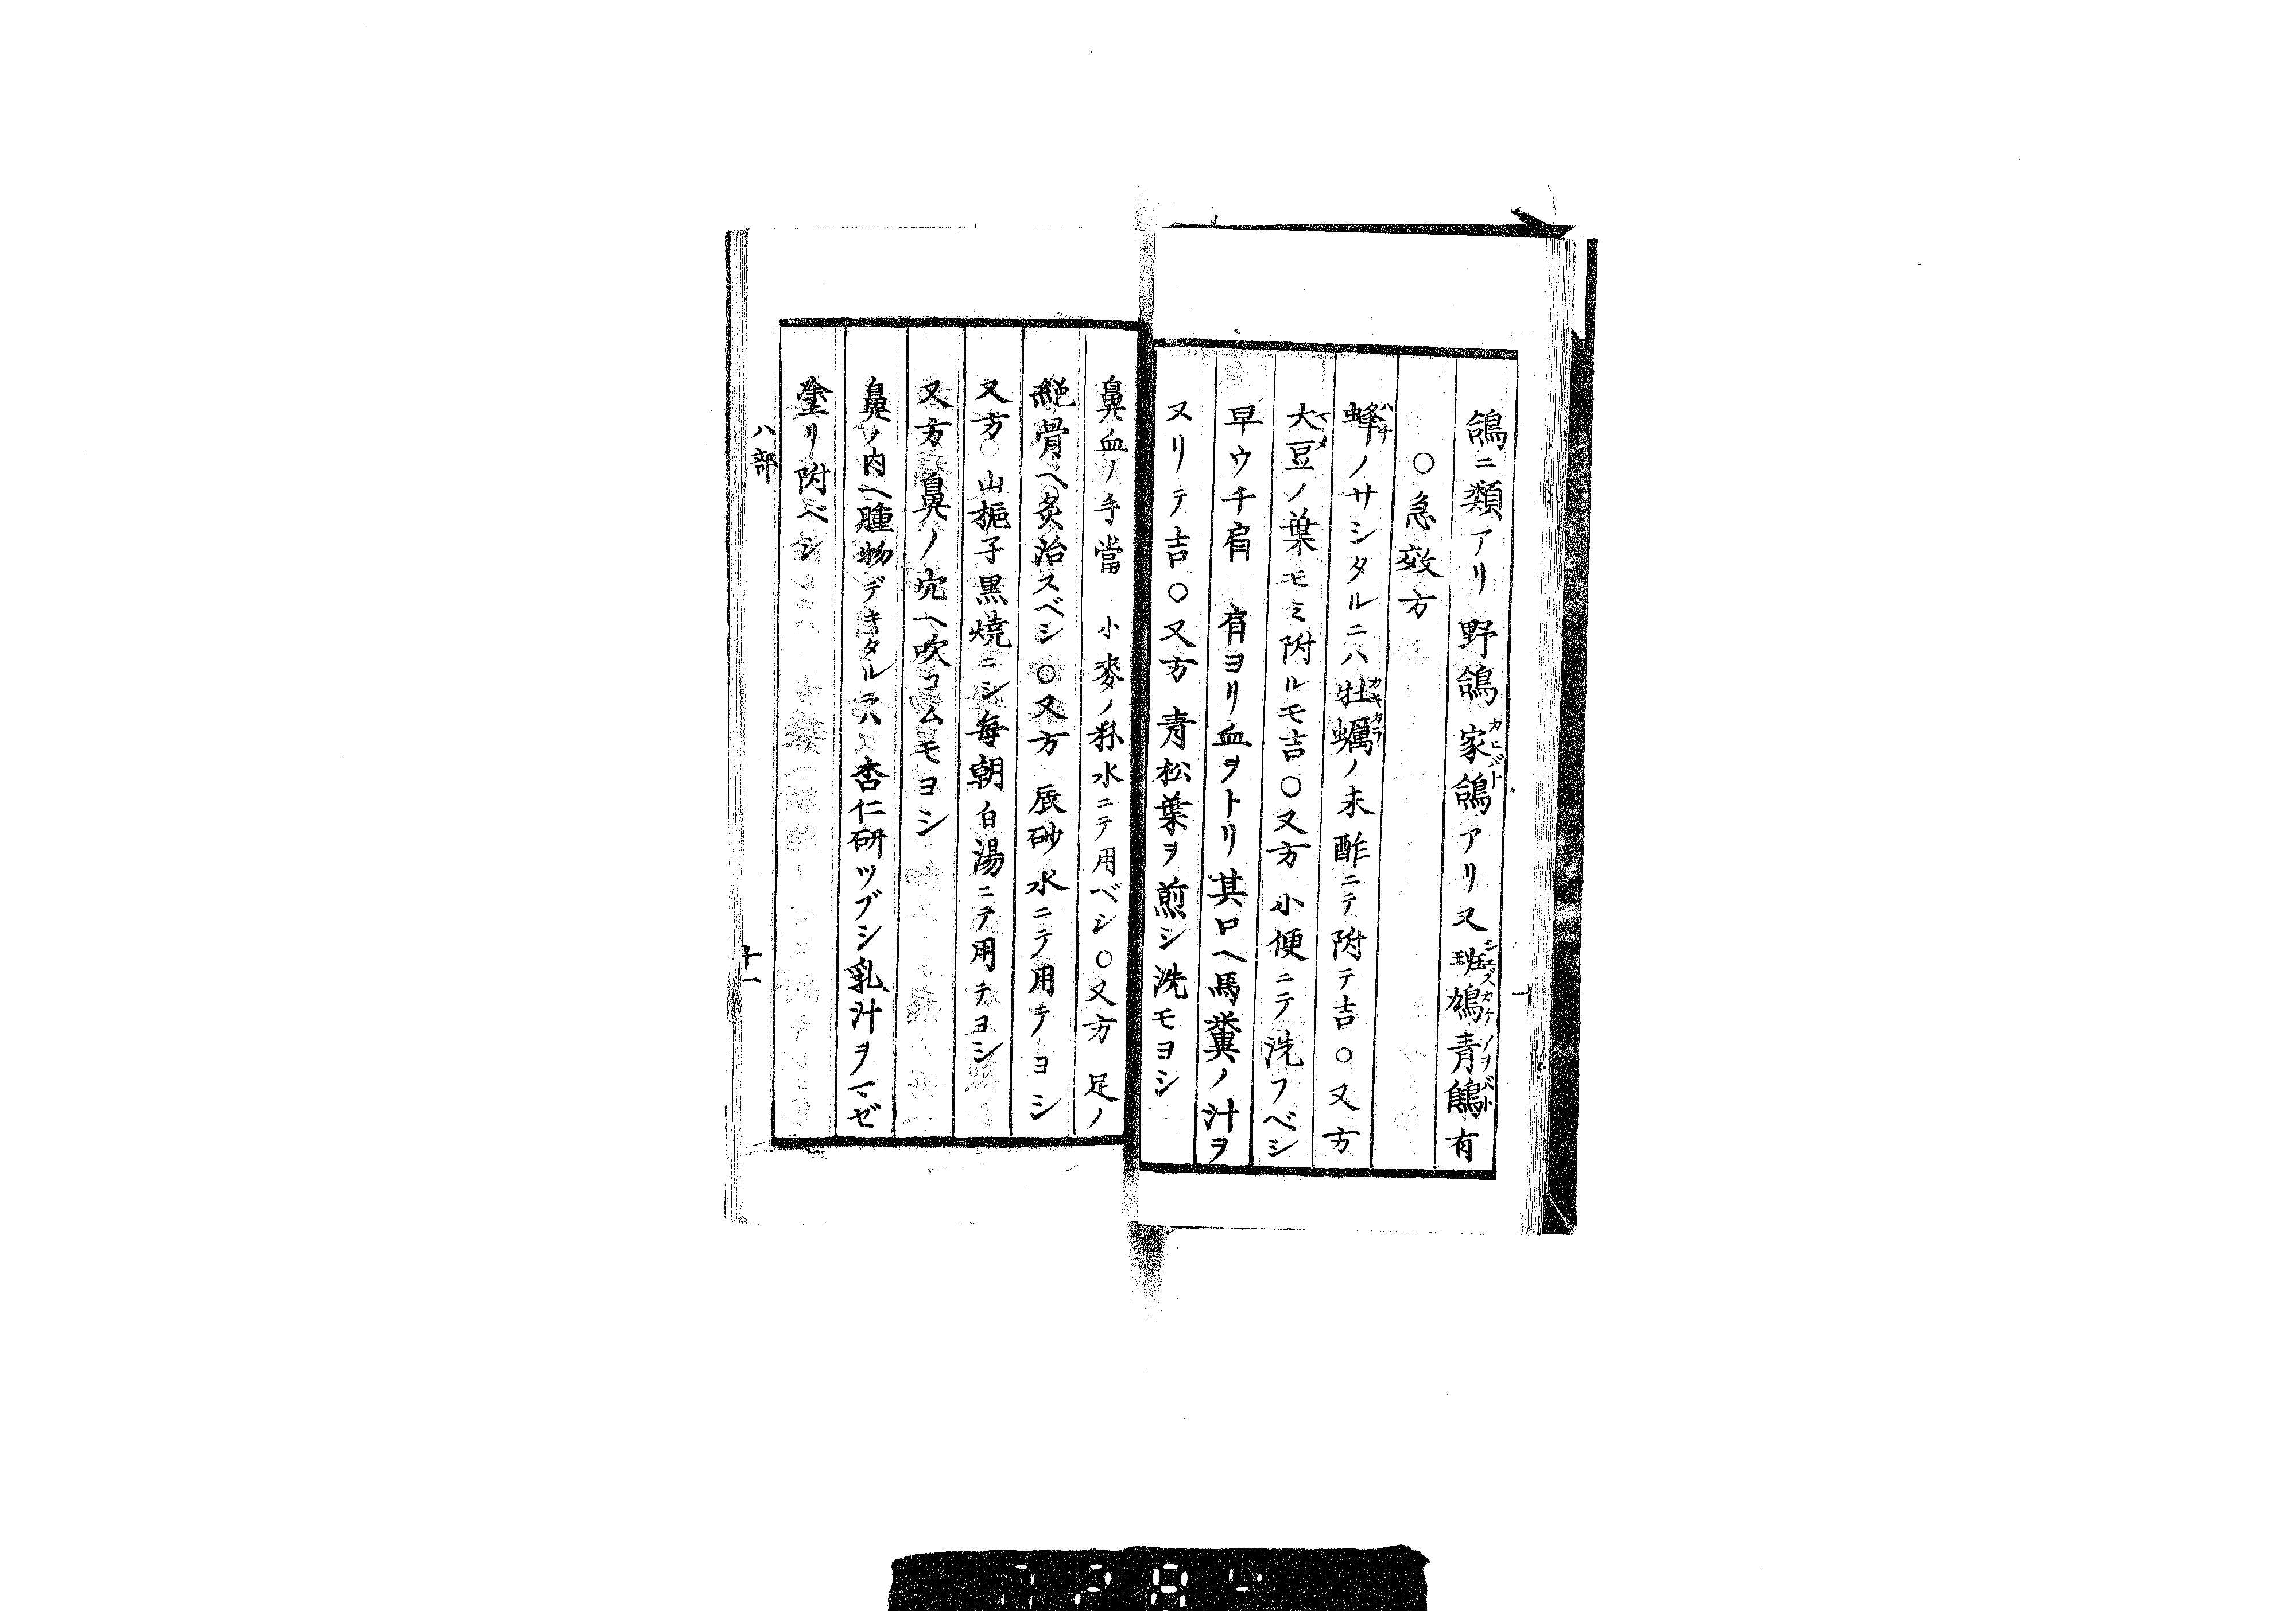 鴿ニ類アリ野鴿家鴿アリ又斑鳩青鵤有
○急效方
蜂ノサシタルニハ牡蠣ノ末酢ニテ附テ吉○又方
大豆ノ葉モミ附ルモ吉○又方小便ニテ洗フベシ
早ウチ肩 肩ヨリ血ヲトリ其口ヘ馬糞ノ汁ヲ
ヌリテ吉○又方青松葉ヲ煎シ洗モヨシ
鼻血ノ手當 小麥ノ粉水ニテ用ベシ○又方 足ノ
絶骨ヘ灸治スベシ○又方 辰砂水ニテ用テヨシ
又方○山梔子黒焼ニシ毎朝白湯ニテ用テヨシ
又方鼻ノ穴ヘ吹コムモヨシ
鼻ノ内ヘ腫物デキタルニハ杏仁研ツブシ乳汁ヲマゼ
塗リ附ベシ
ハ部
十一